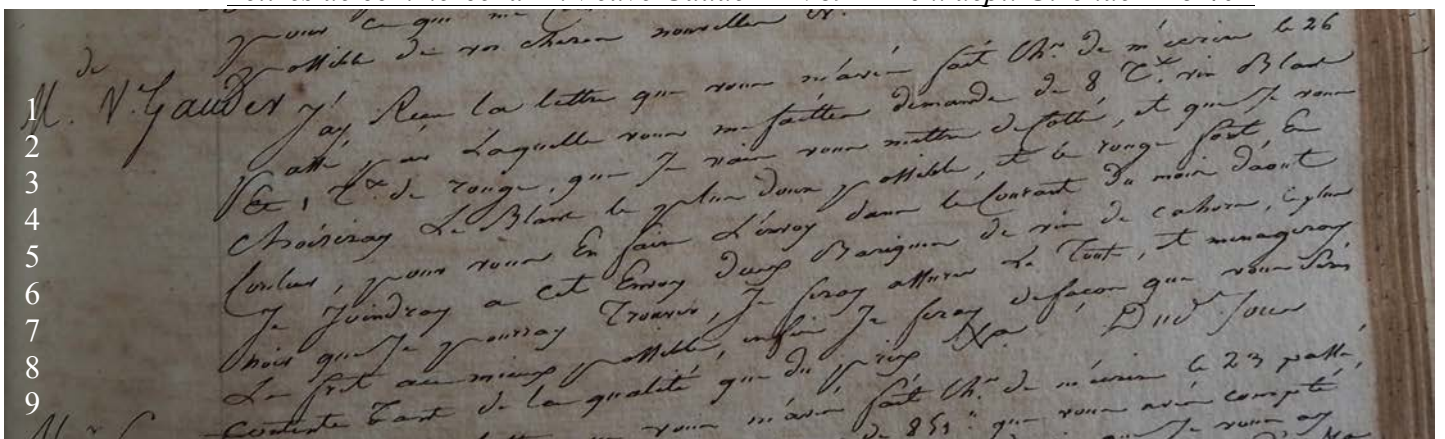 pour ce que me
possible de vos cheres nouvelles &.
M.de Vᵉ. Gauder J'ay Reçu la lettre que vous m'avés fait Ch.r De m'ecrire le 26
passé par Laquelle vous me faittes demande de 8 T.x vin Blanc
Et 1 T.x de rouge, que Je vais vous mettre de Cotté, et que Je vous
choisiray Le Blanc le plus doux possible, et le rouge fort En
Couleur, pour vous En faire L'envoy dans le Courant du mois d'aout
Je Joindray a cet Envoy deux Bariques de vin de cahors, le plus
noir que Je pourray Trouver, Je feray assurer le Tout, et menageray
Le fret au mieux possible, enfin Je feray de facon que vous serés
Contente Tant de la qualité que du prix &a Dud. Jour
vous m'avés fait Ch.r de m'ecrire le 23 passé,
de 851 que vous avés compté
que Je vous ay
1
2
3
4
5
6
7
8
9